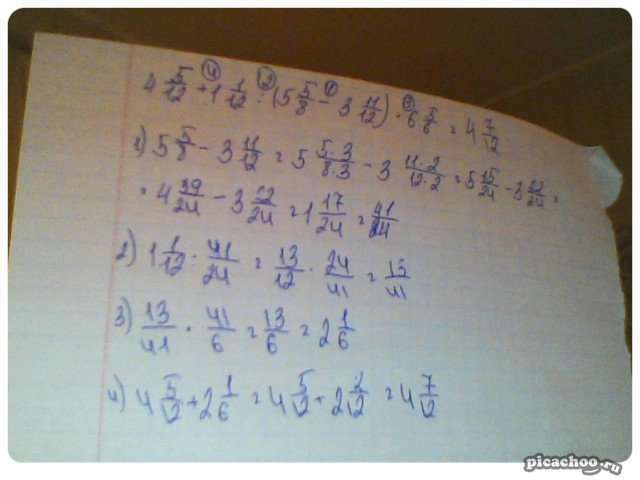 4 5/12 + 1 1/12 : (5 5/8 - 3 11/12) · 6 5/6 = 4 7/12
1) 5 5/8 - 3 11/12 = 5 5·3/8·3 - 3 11·2/12·2 = 5 15/24 - 3 22/24 =
= 4 39/24 - 3 22/24 = 1 17/24 = 41/24
2) 1 1/12 · 41/24 = 13/12 · 24/41 = 13/41
3) 13/41 · 41/6 = 13/6 = 2 1/6
4) 4 5/12 + 2 1/6 = 4 5/12 + 2 2/12 = 4 7/12
picachoo.ru